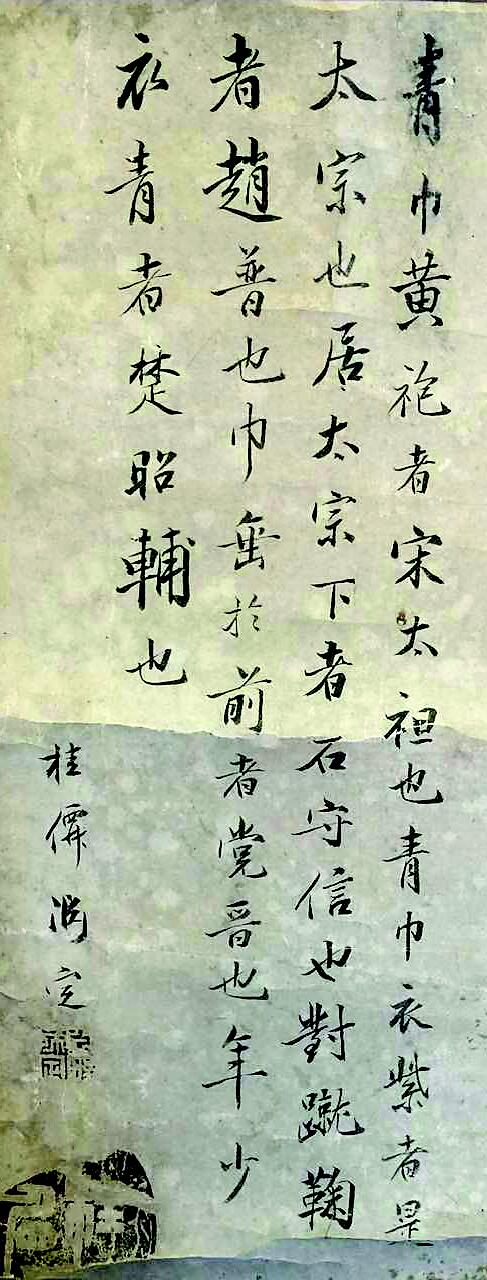 青巾黃袍者宋太祖也青巾衣紫者是
太宗也居太宗下者石守信也對蹴鞠
者趙普也巾垂於前者党晉也年少
衣青者楚昭輔也
桂儒